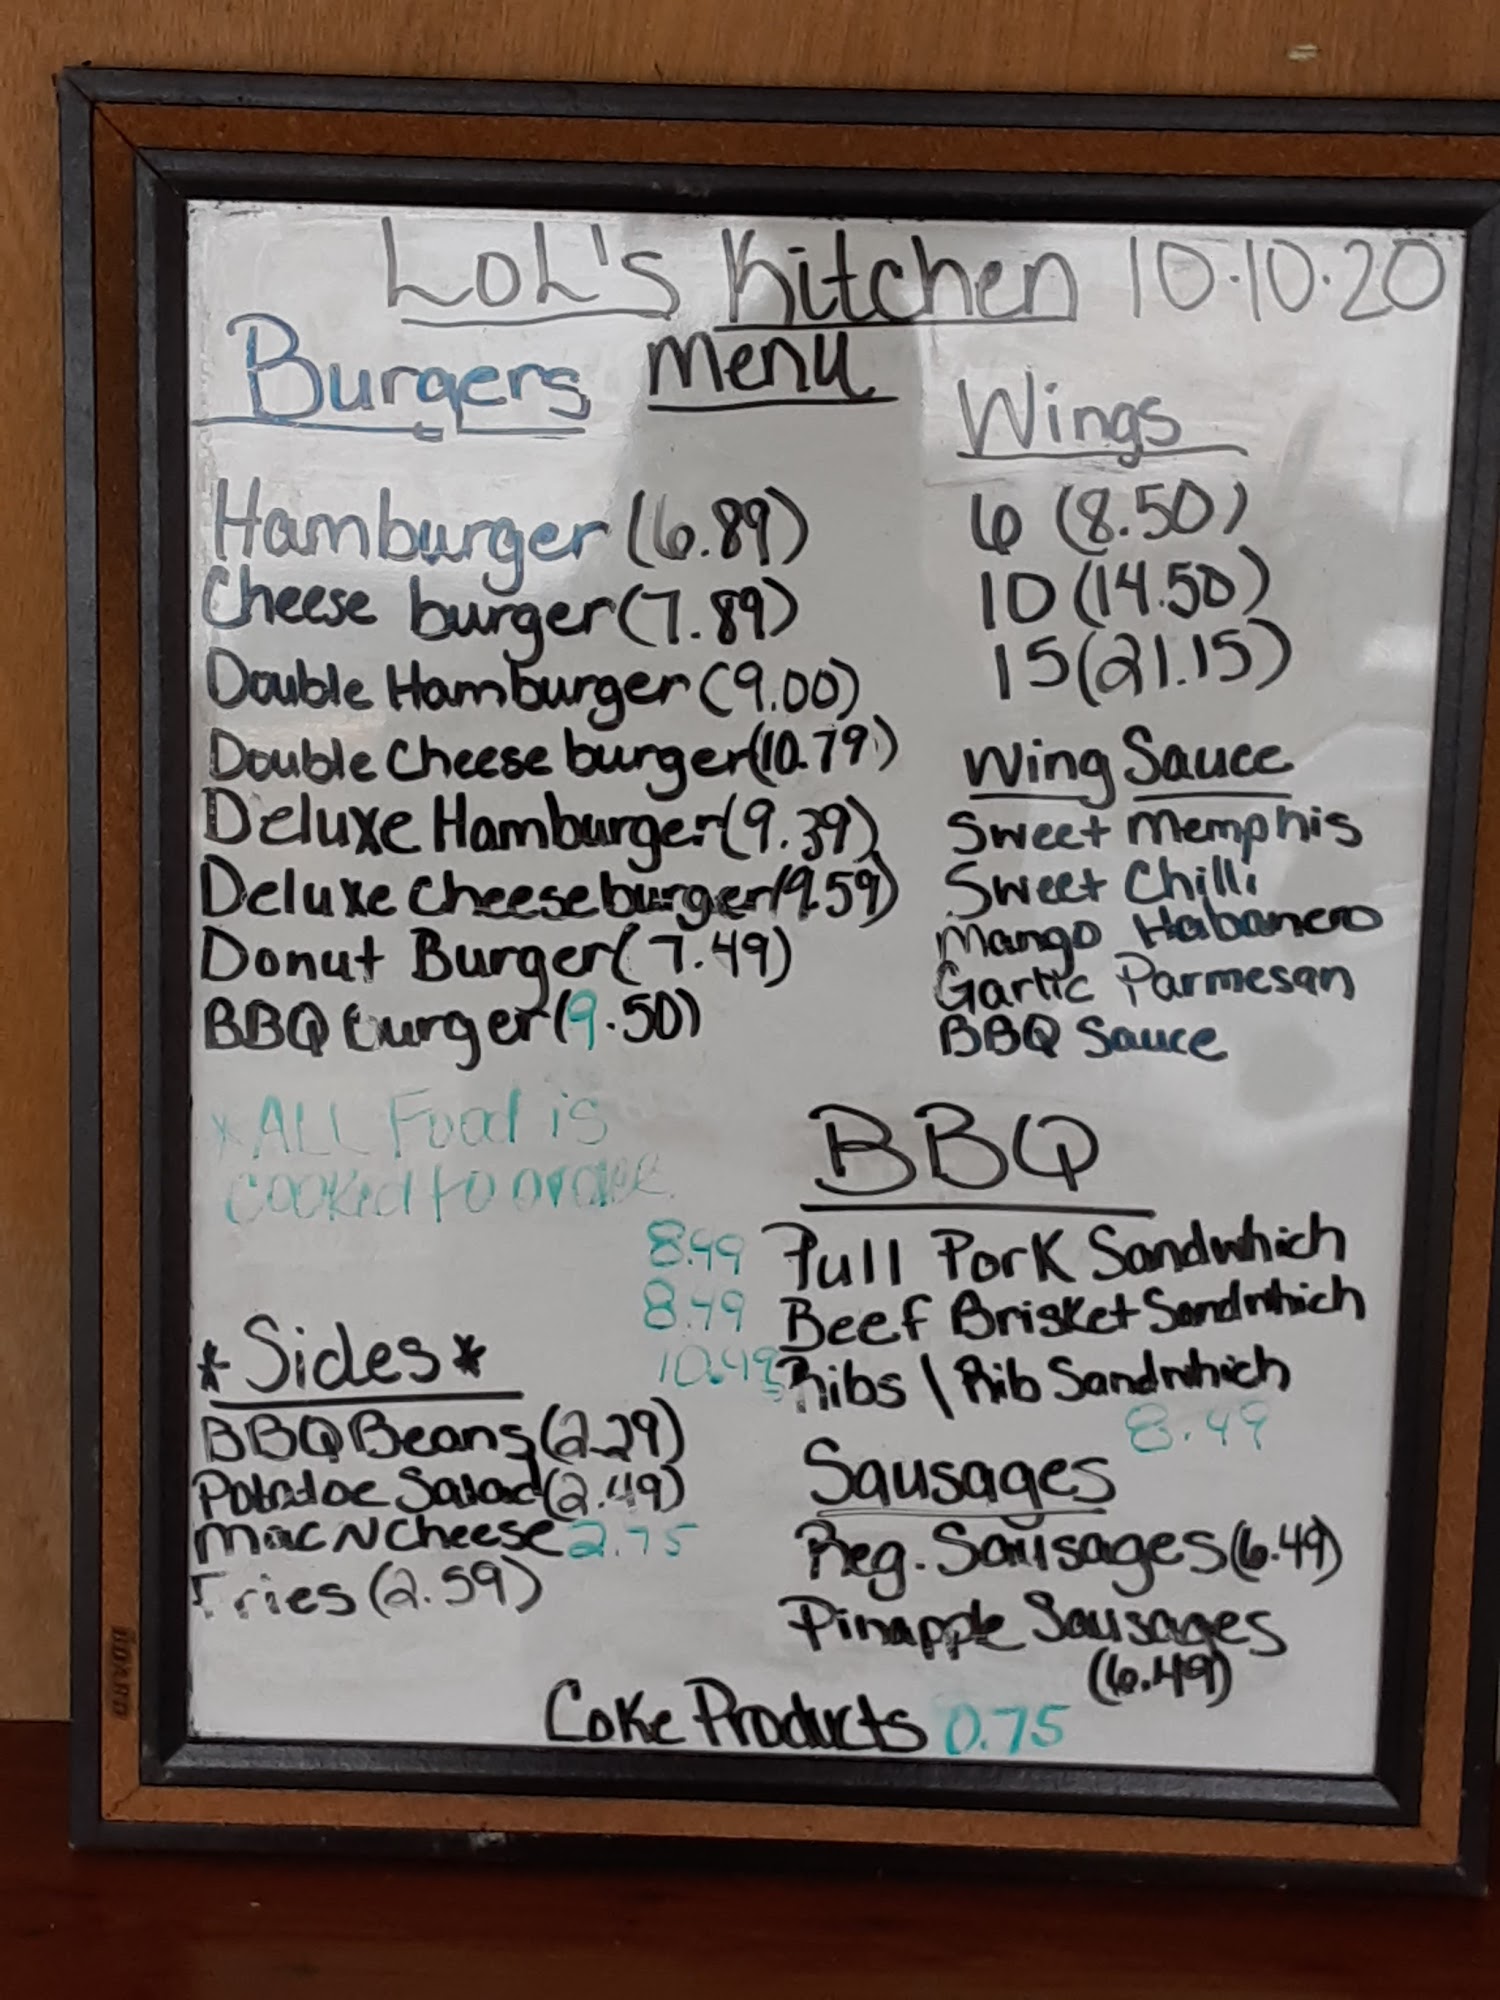 LOL's Kitchen 10.10.20
Menu
Burgers
Hamburger (6.89)
Cheese burger (7.89)
Double Hamburger (9.00)
Double Cheese burger (10.79)
Deluxe Hamburger (9.39)
Deluxe Cheese burger (9.59)
Donut Burger (7.49)
BBQ burger (9.50)
*ALL Food is
cooked to order
*Sides*
BBQ Beans (2.29)
Potatoe Salad (2.49)
Mac N Cheese 2.75
Fries (2.59)
Wings
6 (8.50)
10 (14.50)
15 (21.15)
Wing Sauce
Sweet Memphis
Sweet Chilli
Mango Habanero
Garlic Parmesan
BBQ Sauce
BBQ
8.49 Pull Pork Sandwhich
8.49 Beef Brisket Sandwhich
10.49 Ribs \ Rib Sandwhich
8.49
Sausages
Reg. Sausages (6.49)
Pinapple Sausages
(6.49)
Coke Products 0.75
BOARD